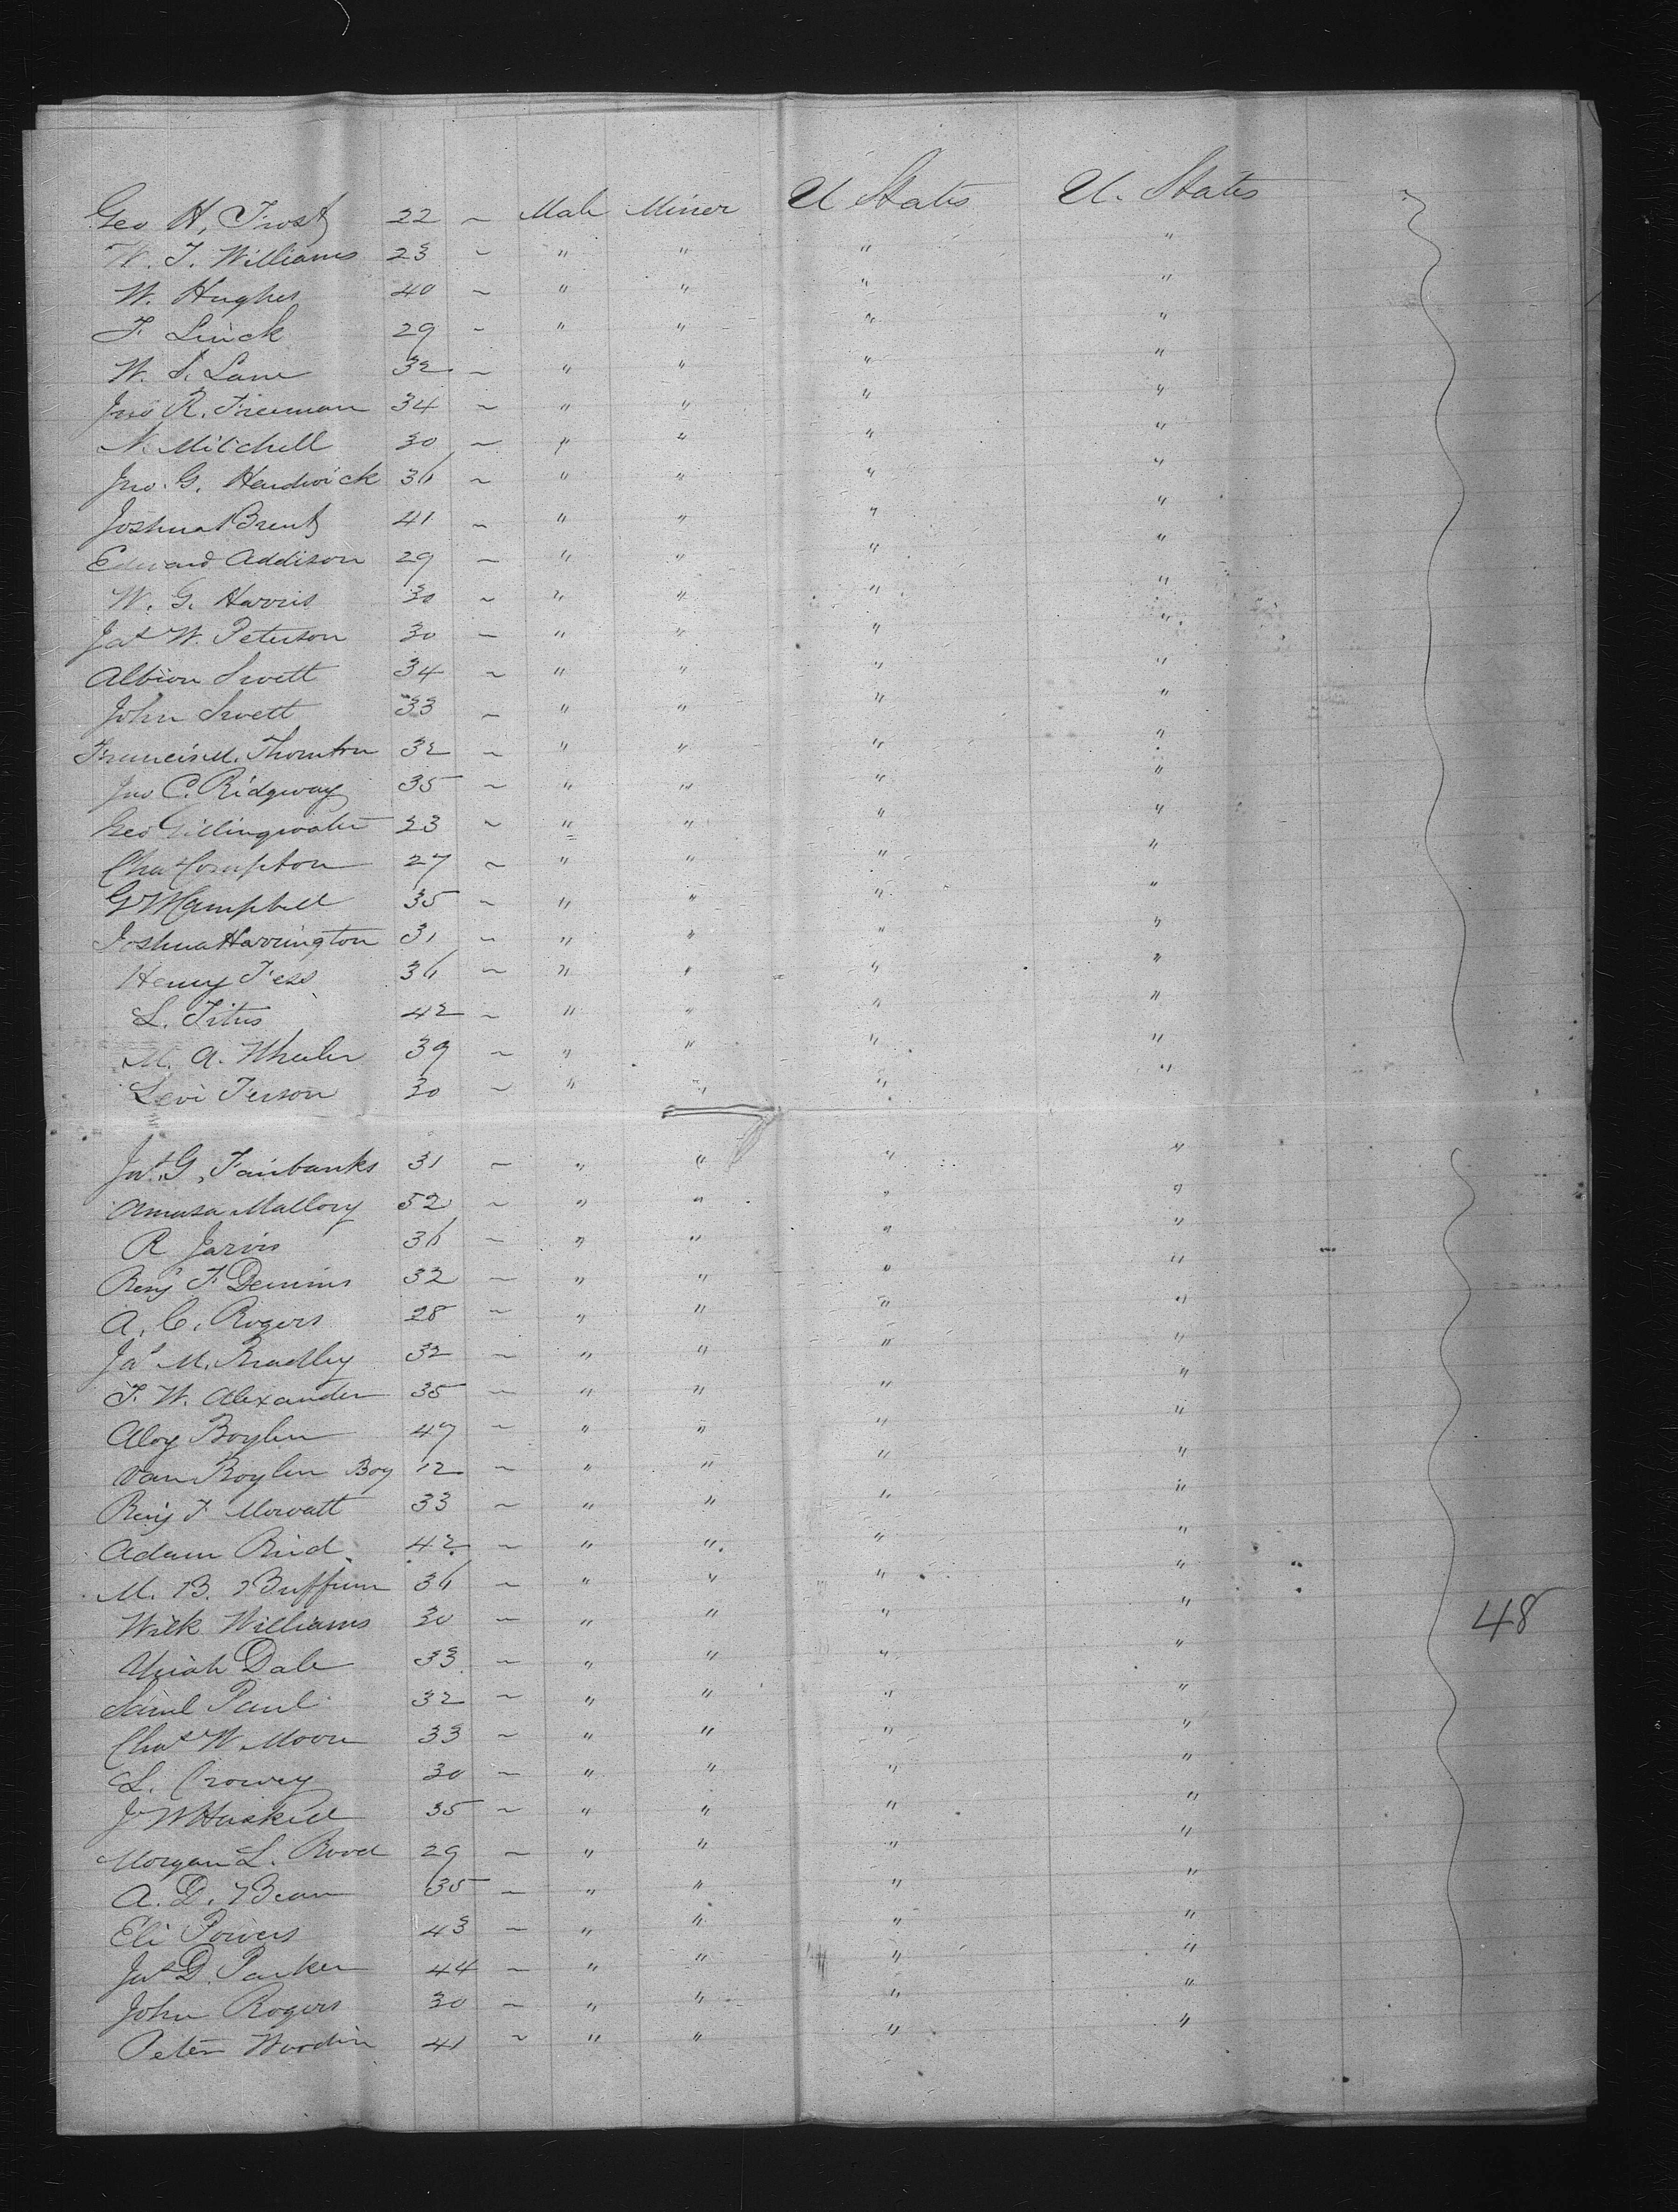 Geo H. Frost 22 ~ Male Miner U States U. States
W. T. Williams 23 ~ " " " "
W. Hughes 40 ~ " " " "
F. Linck 29 ~ " " " "
W. S. Lane 32 ~ " " " "
Jno R. Freeman 34 ~ " " " "
N. Mitchell 30 ~ " " " "
Jno. G. Hardwick 36 ~ " " " "
Joshua Brent 41 ~ " " " "
Edward Addison 29 ~ " " " "
W. G. Harris 30 ~ " " " "
Jas W. Peterson 30 ~ " " " "
Albion Swett 34 ~ " " " "
John Swett 33 ~ " " " "
Francis M. Thornton 32 ~ " " " "
Jno C. Ridgway 35 ~ " " " "
Geo Gillingwater 23 ~ " " " "
Chas Compton 27 ~ " " " "
G W Campbell 35 ~ " " " "
Joshua Harrington 31 ~ " " " "
Henry Fess 36 ~ " " " "
L. Titus 42 ~ " " " "
M. A. Wheeler 39 ~ " " " "
Levi Ferson 30 ~ " " " "
Jas. G. Fairbanks 31 ~ " " " "
Amasa Mallory 52 ~ " " " "
R Jarvis 36 ~ " " " "
Benj F. 32 ~ " " " "
A. C. Rogers 28 ~ " " " "
Jas M. Bradley 32 ~ " " " "
T. W. Alexander 35 ~ " " " "
Aloy Boylen 47 ~ " " " "
Van Boylen Boy 12 ~ " " " "
Benj F Morvatt 33 ~ " " " "
Adam Bird 42 ~ " " " "
M. B. Buffum 36 ~ " " " "
Wilk Williams 30 ~ " " " " 48
Uriah Dale 33 ~ " " " "
Saml Paul 32 ~ " " " "
Chas W Moore 33 ~ " " " "
L. Crowey 30 ~ " " " "
J W Haskell 35 ~ " " " "
Morgan L. Rood 29 ~ " " " "
A. D. Bean 35 ~ " " " "
Eli Powers 43 ~ " " " "
Jas D. Parker 44 ~ " " " "
John Rogers 30 ~ " " " "
Peter Wordin 41 ~ " " " "